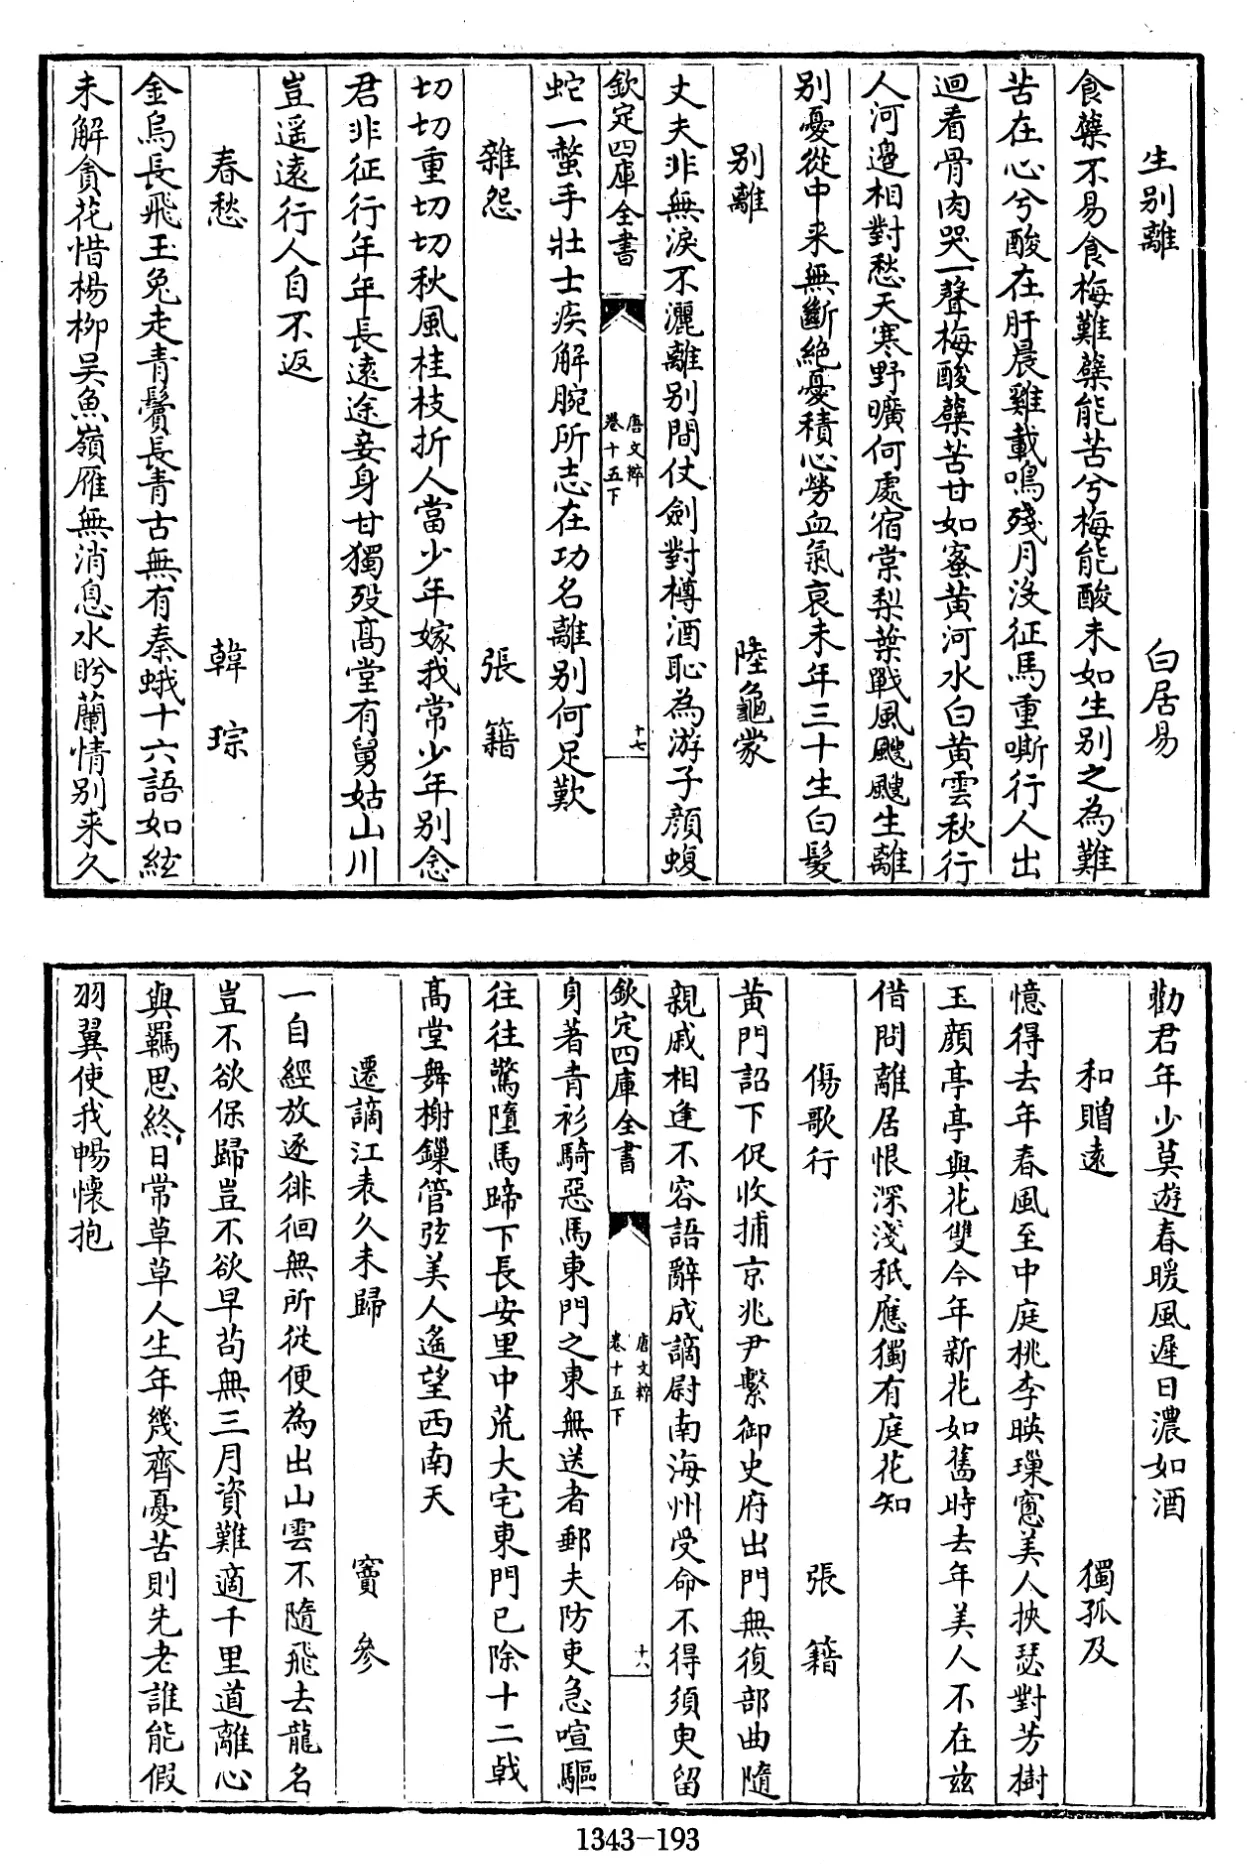 生别離 白居易
食蘖不易食梅難蘖能苦兮梅能酸未如生别之為難
苦在心兮酸在肝晨雞載鳴殘月沒征馬重嘶行人出
迴看骨肉哭一聲梅酸蘖苦甘如蜜黄河水白黄雲秋行
人河邉相對愁天寒野曠何處宿棠梨葉戰風颼颼生離
别憂從中来無斷絶憂積心勞血氣哀未年三十生白髮
别離 陸龜蒙
丈夫非無淚不灑離别間仗劍對樽酒恥為游子顔蝮
欽定四庫全書
唐文粹
卷十五下
十七
蛇一螫手壮士疾解腕所志在功名離别何足歎
雜怨 張籍
切切重切切秋風桂枝折人當少年嫁我常少年别念
君非征行年年長逺途妾身甘獨殁髙堂有舅姑山川
豈遥逺行人自不返
春愁 韓琮
金烏長飛玉兔走青鬢長青古無有秦蛾十六語如絃
未解貪花惜楊柳吴魚嶺雁無消息水盻蘭情别来久
勸君年少莫遊春暖風遲日濃如酒
和贈逺 獨孤及
憶得去年春風至中庭桃李暎璅窻美人挾瑟對芳樹
玉顔亭亭與花雙今年新花如舊時去年美人不在兹
借問離居恨深淺秖應獨有庭花知
傷歌行 張籍
黄門詔下促收捕京兆尹繫御史府出門無復部曲隨
親戚相逢不容語辭成謫尉南海州受命不得須臾留
欽定四庫全書
唐文粹
卷十五下
十八
身著青衫騎惡馬東門之東無送者郵夫防吏急喧驅
往往驚墮馬蹄下長安里中荒大宅東門已除十二㦸
髙堂舞榭鏁管弦美人遥望西南天
遷謫江表久未歸 竇參
一自經放逐徘徊無所從便為出山雲不隨飛去龍名
豈不欲保歸豈不欲早苟無三月資難適千里道離心
與羈思終日常草草人生年幾齊憂苦則先老誰能假
羽翼使我暢懐抱
1343-193